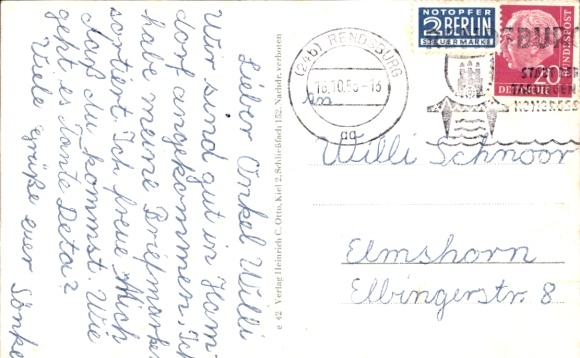 Lieber Onkel Willi
Wir sind gut in Ham-
dorf angekommen. Ich
habe meine Briefmarken
sortiert. Ich freue Mich
daß du kommst. Wie
geht es Tante Deta?
Viele grüße euer Sönke
e 42 Verlag Heinrich C. Otto, Kiel 2, Schließfach 152 Nachdr. verboten
(24b) RENDSBURG
NOTOPFER
2 BERLIN
STEUERMARKE
20
DEUTSCHE
BUNDESPOST
KONGRESSE
An
Willi Schnoor
Elmshorn
Elbingerstr. 8